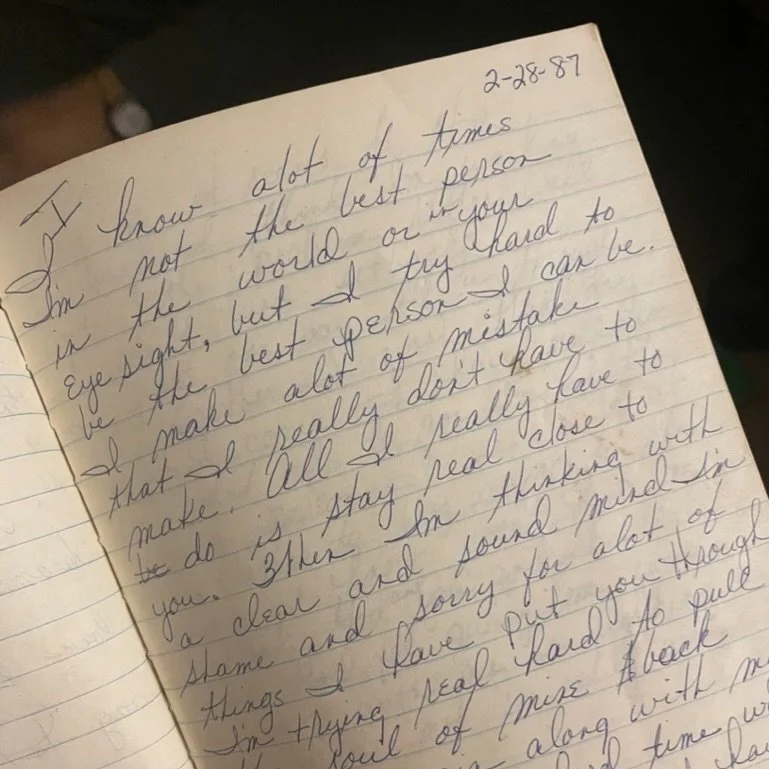 2-28-87
I
I know alot of times
I'm not the best person
in the world or in your
eye sight, but I try hard to
be the best person I can be.
I make alot of mistake
that I really don't have to
make. All I really have to
do is stay real close to
you. When I'm thinking with
a clear and sound mind I'm
shame and sorry for alot of
things I have put you through
I'm trying real hard to pull
soul of mine back
along with
time